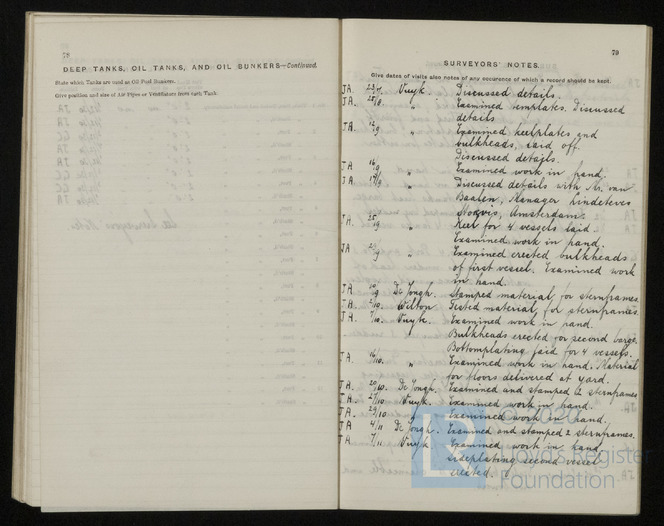 78
DEEP TANKS, OIL TANKS, AND OIL BUNKERS—Continued.
State which Tanks are used as Oil Fuel Bunkers.
Give position and size of Air Pipes or Ventilators from each Tank.
79
SURVEYORS' NOTES.
Give dates of visits also notes of any occurence of which a record should be kept.
JA. Vuyk. Discussed details.
JA. " Examined templates. Discussed
details
JA. " Examined keelplates and
bulkheads, laid off.
Discussed details.
JA Examined work in hand.
JA. " Discussed details with Mr. van
Baalen, Manager Lindeteves
Stokvis, Amsterdam.
JA. " Keel for 4 vessels laid.
Examined work in hand.
JA " Examined erected bulkheads
of first vessel. Examined work
in hand.
JA De Jongh. Stamped material for sternframes.
JA. 2/10 Wilton Tested material for sternframes.
JA. 7/10. Vuyk. Examined work in hand.
" Bulkheads erected for second barge.
Bottomplating laid for 4 vessels.
JA. 16/10. " Examined work in hand. Material
for floors delivered at yard.
JA. 20/10. De Jongh. Examined and stamped 2 sternframes
JA. 27/10 Vuyk. Examined work in hand.
JA. 29/10 Examined work in hand.
JA 4/11 De Jongh. Examined and stamped 2 sternframes.
JA 7/11 Vuyk Examined work in hand,
sideplating second vessel
erected.
© 2020
LR
Lloyd's Register
Foundation